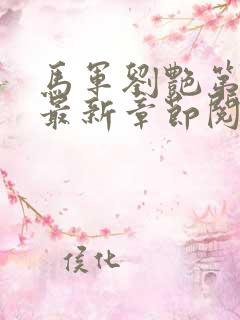 馬軍劉艷第
最新章節閱
侯化